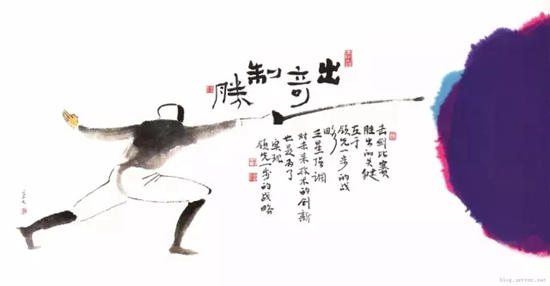 出奇制勝
击剑比赛
胜出的关键
在于
领先一步的战
略
三星强调
对未来技术的创新
也是为了
实现
领先一步的战略
blog.artron.net